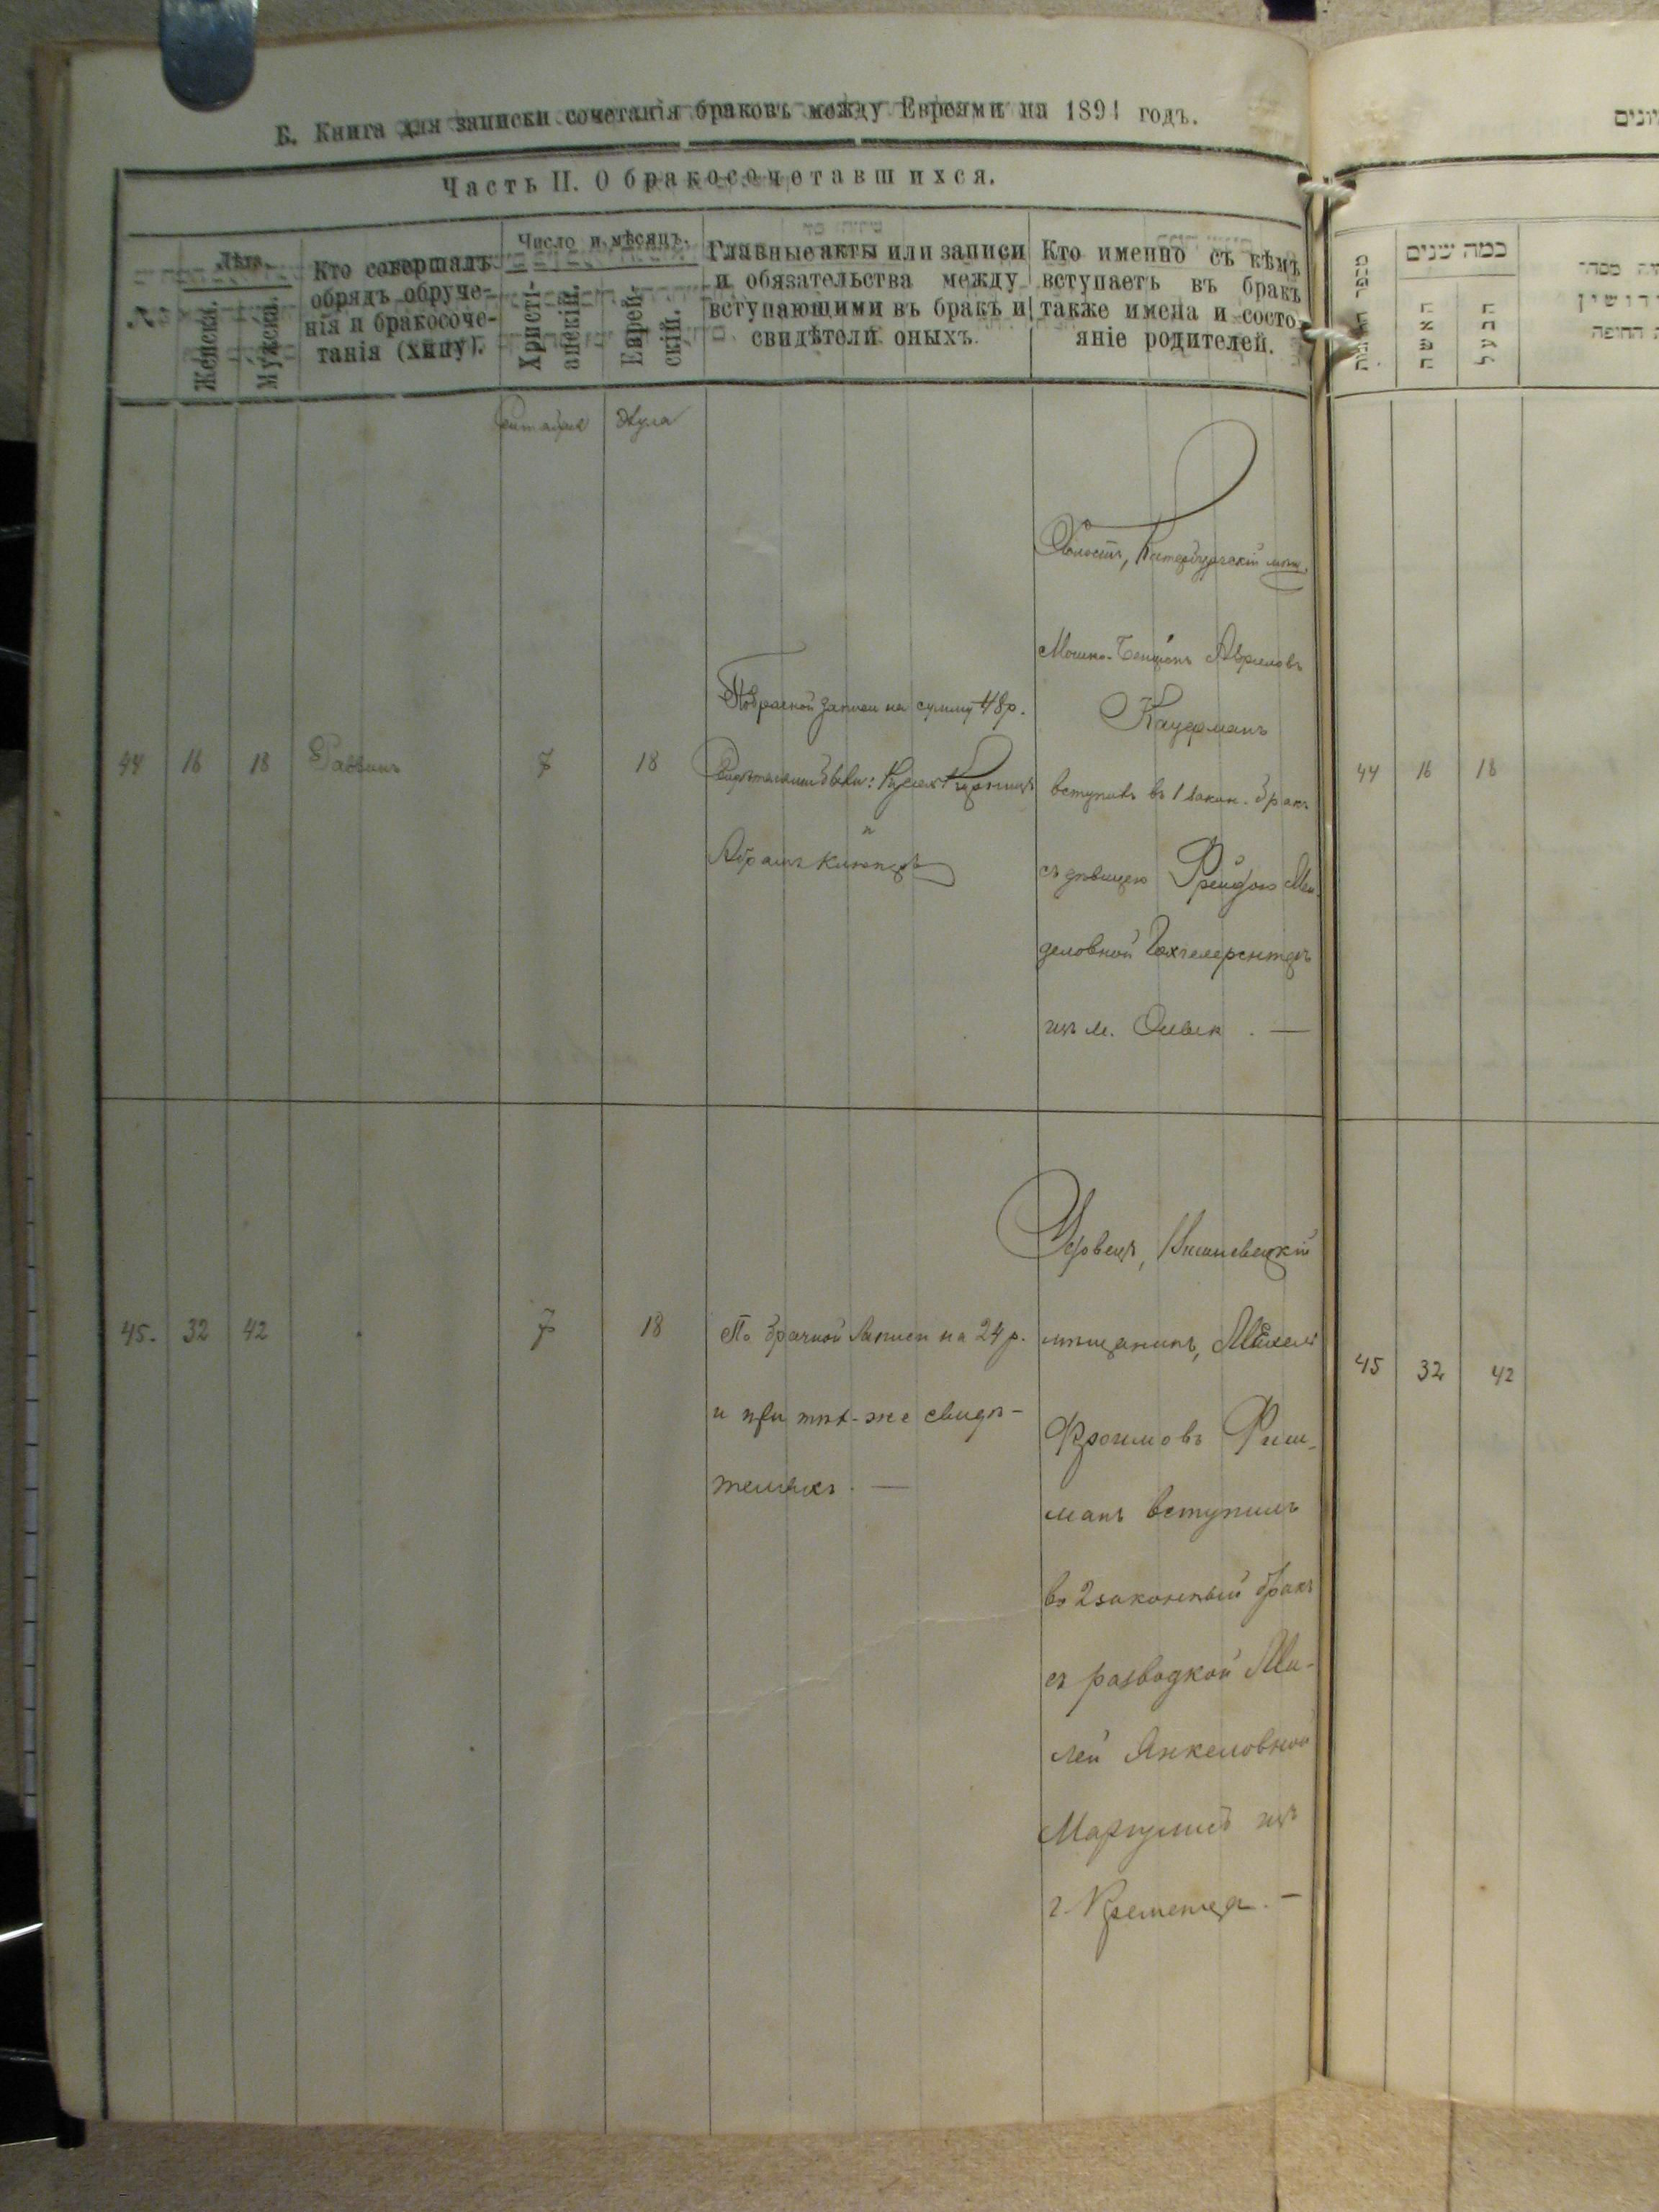 Б. Книга для записки сочетанія браковъ между Евреями на 1891 годъ.
Часть II. О бракосочетавшихся.
№
Лѣта.
Женска.
Мужска.
Кто совершалъ
обрядъ обруче-
нія и бракосоче-
танія (хипу).
Число и мѣсяцъ.
Христі-
анскій.
Еврей-
скій.
Главные акты или записи
и обязательства между
вступающими въ бракъ и
свидѣтели оныхъ.
Кто именно съ кѣмъ
вступаетъ въ бракъ
также имена и состо-
яніе родителей.
Элула
44 16 18 Раввинъ 7 18
По брачной записи на сумму 48 р.
Свидѣтелями были:
и
Абрамъ
Холостъ,
Мошко-Бенціонъ
Кауфманъ
вступилъ въ 1 закон. бракъ
съ дѣвицею Фрейдою Мен-
деловной
изъ м. Олык. —
45. 32 42 7 18
По брачной записи на 24 р.
и при тѣхъ-же свидѣ-
теляхъ. —
Вдовецъ, Вишневецкій
мѣщанинъ,
Фроимовъ Фиш-
манъ вступилъ
въ 2 законный бракъ
съ разводкой Ма-
лей Янкеловной
Маргулисъ изъ
г. Кременца. —
כמה שנים
האשה
הבעל
44 16 18
45 32 42